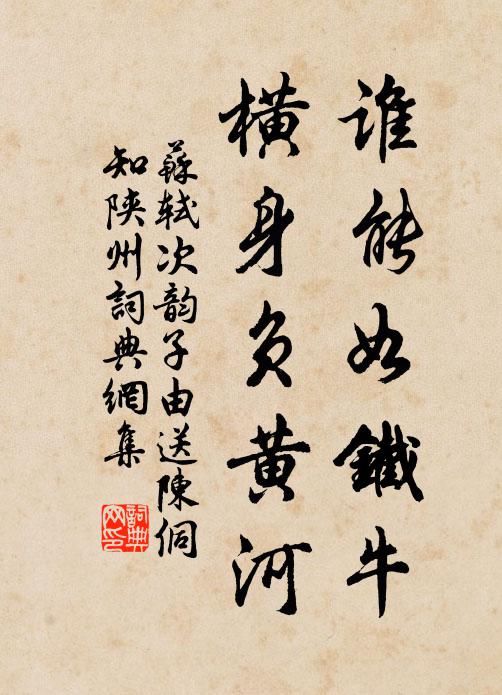 誰能如鐵牛
橫身負黃河
蘇軾次韵子由送陳侗
知陝州詞典網集
詞典
网印